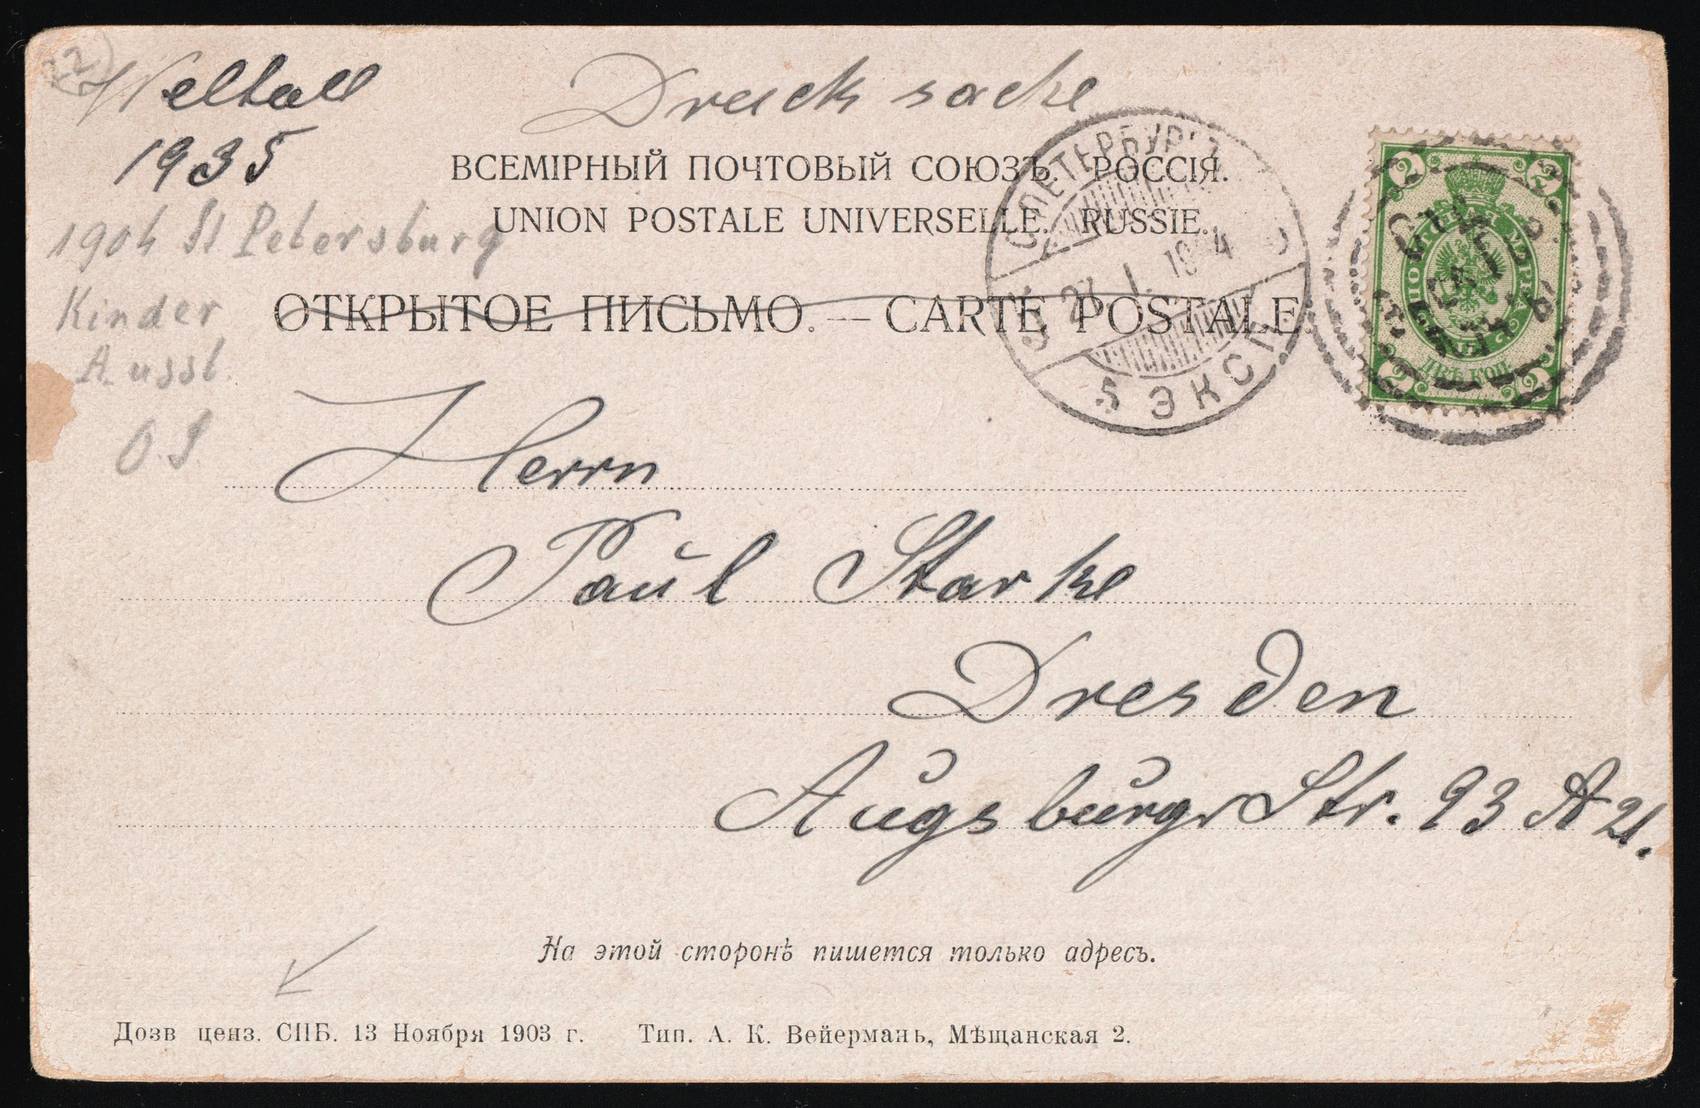 22)
Weltall
1935
Drucksache
ВСЕМІРНЫЙ ПОЧТОВЫЙ СОЮЗЪ. РОССІЯ.
UNION POSTALE UNIVERSELLE. RUSSIE.
1904 St Petersburg
Kinder
Ausst.
ОТКРЫТОЕ ПИСЬМО. — CARTE POSTALE
С.ПЕТЕРБУРГЪ
27.1.1904
5 ЭКСП
2 2
2 2
ДВѢ КОП.
Herrn
Paul Starke
Dresden
Augsburgr Str. 93 A 21.
На этой сторонѣ пишется только адресъ.
Дозв ценз. СПБ. 13 Ноября 1903 г. Тип. А. К. Вейерманъ, Мѣщанская 2.